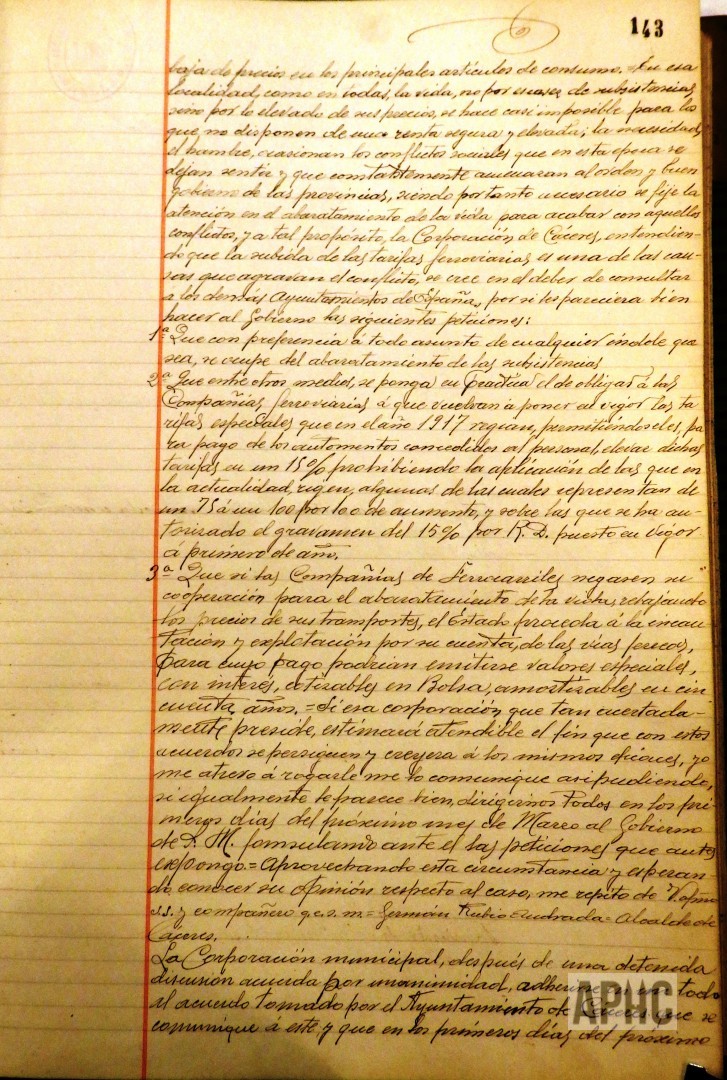 143
baja de precios en los principales articulos de consumo. = En esa
localidad, como en todas, la vida, no por escasez de subsistencias
sino por lo elevado de sus precios, se hace casi imposible para los
que no disponen de una renta segura y elevada; la necesidad,
el hambre, ocasionan los conflictos sociales que en esta época se
dejan sentir y que constantemente amenazan al orden y buen
gobierno de las provincias, siendo por tanto necesario se fije la
atención en el abaratamiento de la vida para acabar con aquellos
conflictos, y a tal propósito, la Corporación de Cáceres, entendien-
do que la subida de las tarifas ferroviarias es una de las cau-
sas que agravan el conflicto, se cree en el deber de consultar
a los demás Ayuntamientos de España, por si les pareciera bien
hacer al Gobierno las siguientes peticiones:
1ª Que con preferencia á todo asunto de cualquier indole que
sea, se ocupe del abaratamiento de las subsistencias
2ª Que entre otros medios, se ponga en practica el de obligar á las
Compañías ferroviarias á que vuelvan á poner en vigor las ta
rifas especiales que en el año 1917 regian, permitiendoseles, pa
ra pago de los aumentos concedidos al personal, elevar dichas
tarifas en un 15% prohibiendo la aplicación de las que en
la actualidad, rigen, algunas de las cuales representan de
un 75 á un 100 por 100 de aumento, y sobre las que se ha au-
torizado el gravamen del 15% por R. D. puesto en vigor
á primero de año.
3ª Que si las Compañías de Ferrocarriles negasen su
cooperación para el abaratamiento de la vida, rebajando
los precios de sus transportes, el Estado proceda á la incau
tación y explotación por su cuenta, de las vías ferreas,
para cuyo pago podrian emitirse valores especiales,
con interés, cotizables en Bolsa, amortizables en cin
cuenta, años. = Si esa corporación, que tan acertada-
mente preside, estimará atendible el fin que con estos
acuerdos se persiguen y creyera á los mismos eficaces, yo
me atrevo á rogarle me lo comunique asi pudiendo,
si igualmente le parece bien, dirigirnos todos en los pri
meros dias del próximo mes de Marzo al Gobierno
de S. M. formulando ante el las peticiones que antes
expongo. = Aprovechando esta circunstancia y esperan
do conocer su opinión respecto al caso, me repito de V. afmo
s.s. y compañero q.e.s.m. = Germán Rubio Andrada = Alcalde de
Cáceres.
La Corporación municipal, después de una detenida
discusión acuerda por unanimidad, adherirse en un todo
al acuerdo tomado por el Ayuntamiento de Cáceres que se
comunique a este y que en los primeros días del próximo
APHC